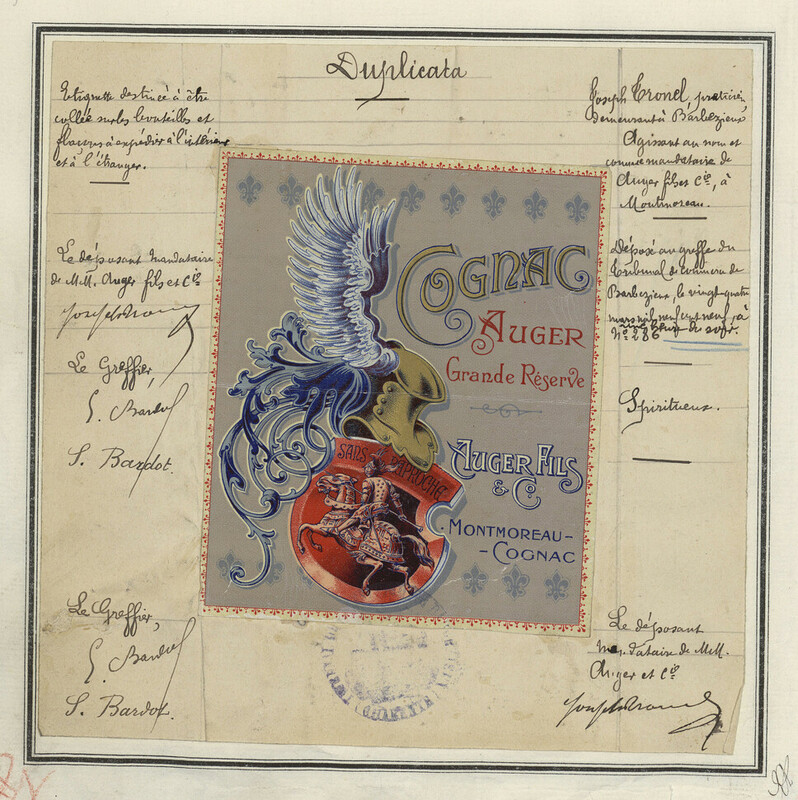 Duplicata
Etiquette destinée à être
collée sur les bouteilles et
flacons à expédier à l'intérieur
et à l'étranger.
Le déposant mandataire
de M.M. Auger fils et Cie
Le Greffier,
S. Bardot
S. Bardot.
Le Greffier,
S. Bardot
S. Bardot.
COGNAC
AUGER
GRANDE RÉSERVE
SANS APROCHE
AUGER FILS
& Co.
MONTMOREAU-
-COGNAC
CHARENTE
Joseph Tronel, praticien,
demeurant à Barbezieux
Agissant au nom et
comme mandataire de
Auger fils et Cie, à
Montmoreau.
Déposé au greffe du
Tribunal de commerce de
Barbezieux, le vingt-quatre
mars mil neuf cent neuf, à
heure du soir.
No 286
Spiritueux.
Le déposant
mandataire de M.M.
Auger et Cie